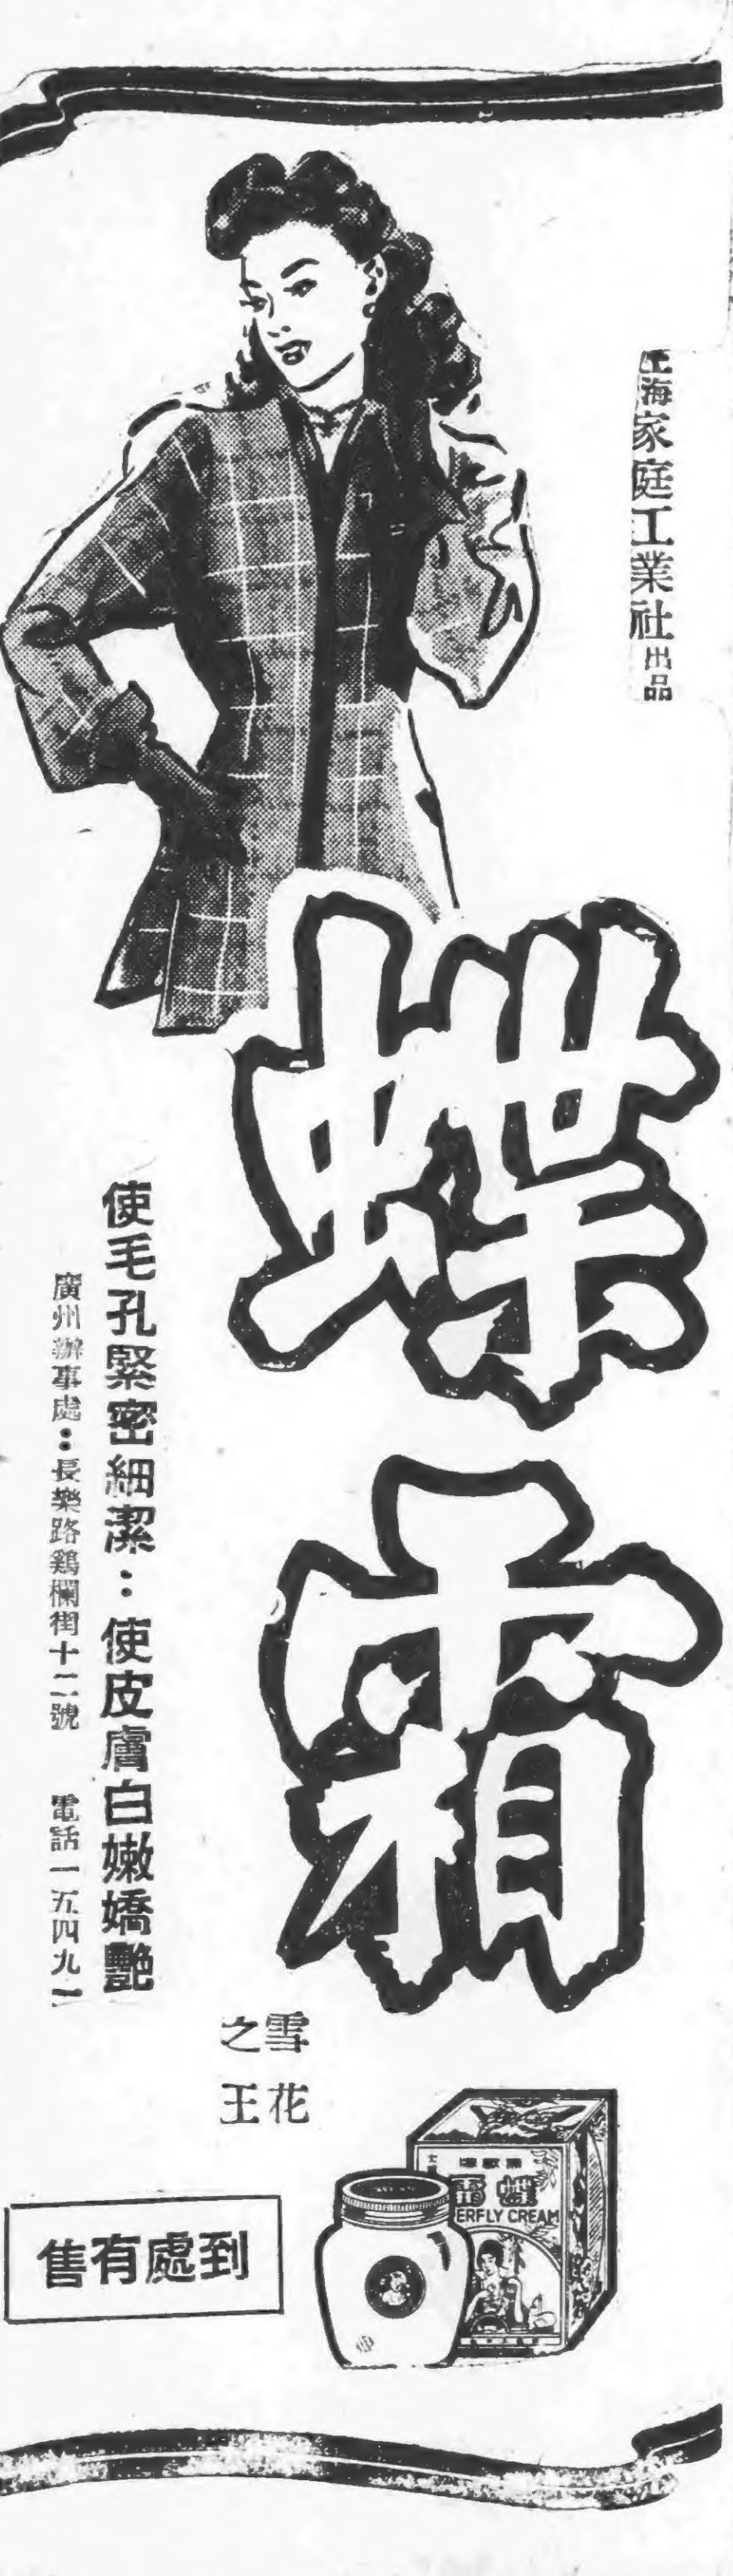 上海家庭工業社出品
蝶霜
雪花
之王
使毛孔緊密細潔：使皮膚白嫩嬌艷
廣州辦事處：長樂路鷄欄街十二號　電話一五四九一
蝶霜
ERFLY CREAM
到處有售